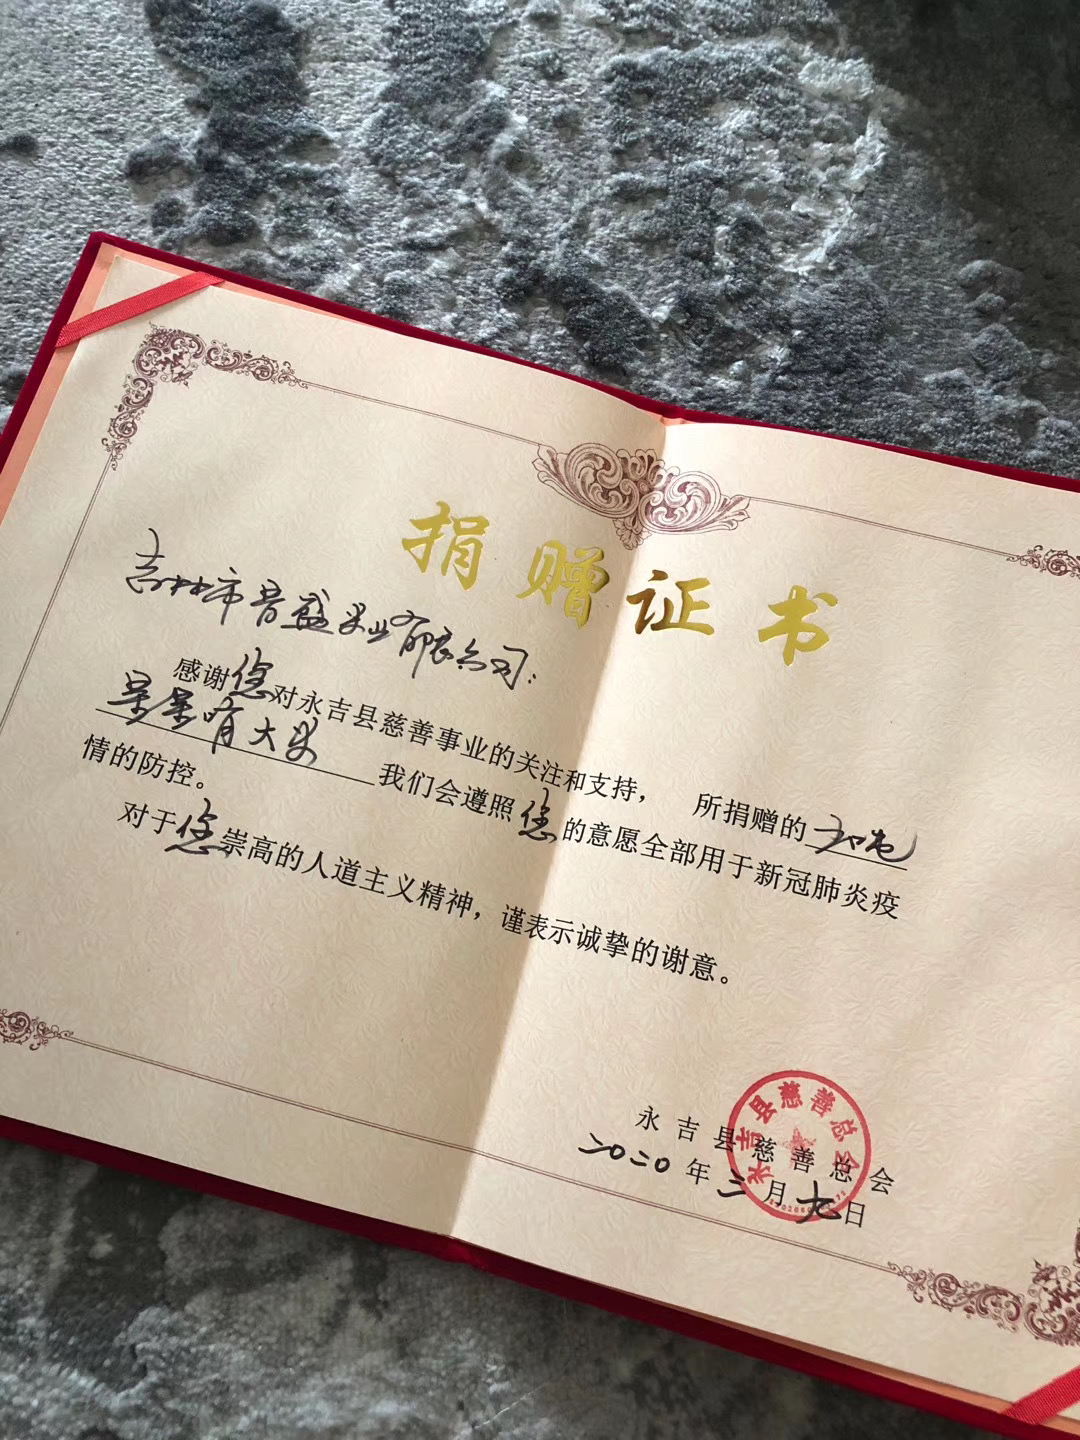 捐赠证书
吉林市晋盛米业有限公司:
感谢您对永吉县慈善事业的关注和支持， 所捐赠的
我们会遵照您的意愿全部用于新冠肺炎疫
情的防控。
对于您崇高的人道主义精神，谨表示诚挚的谢意。
永吉县慈善总会
二〇二〇年三月七日
永吉县慈善总会